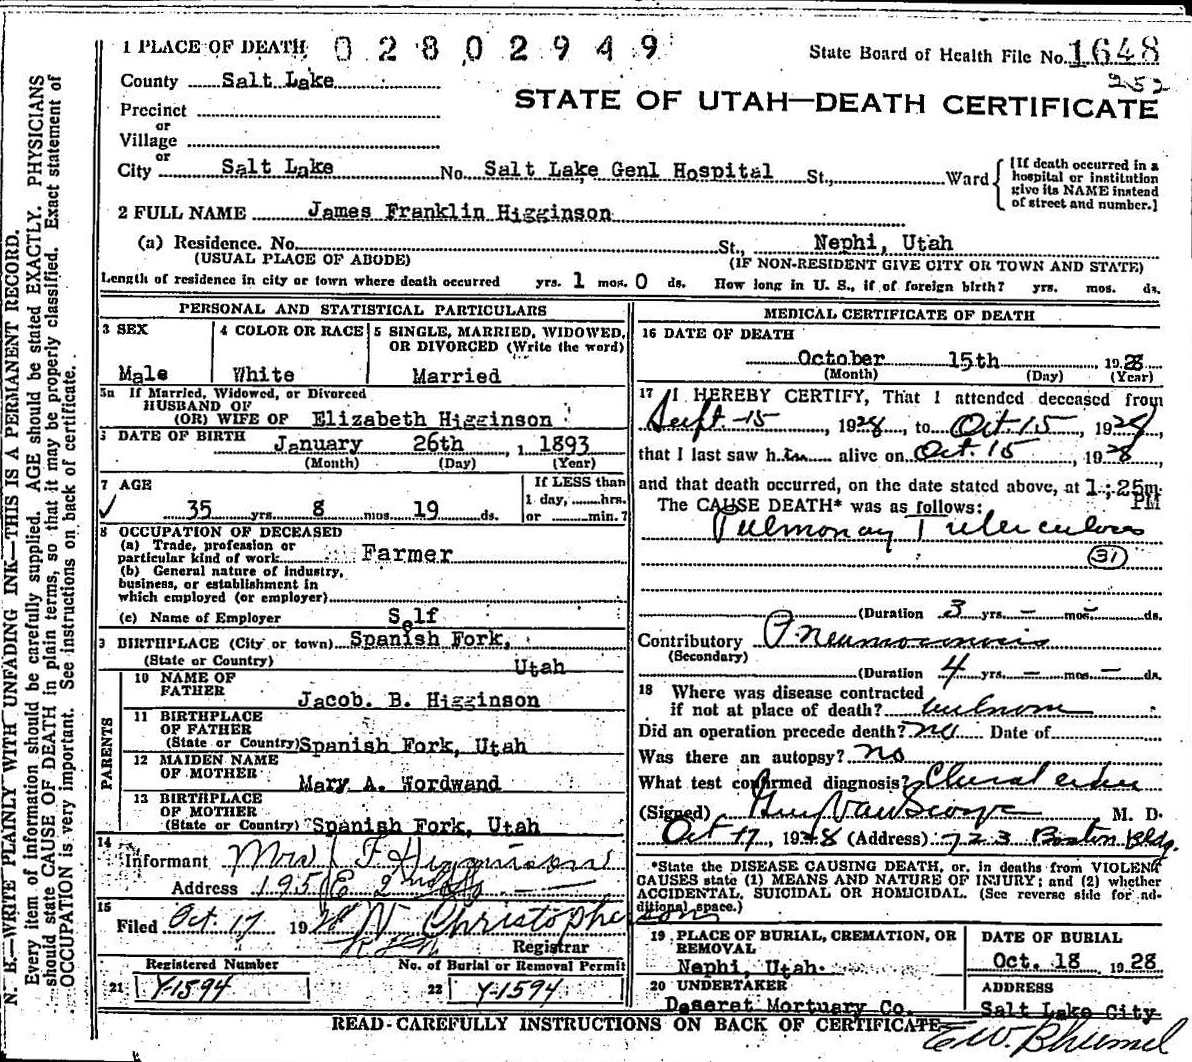 1 PLACE OF DEATH 02802949 State Board of Health File No. 1648
County Salt Lake 252
STATE OF UTAH—DEATH CERTIFICATE
Precinct
or
Village
or
City Salt Lake No. Salt Lake Genl Hospital St., Ward {[If death occurred in a hospital or institution give its NAME instead of street and number.]
2 FULL NAME James Franklin Higginson
(a) Residence. No. St., Nephi, Utah
(USUAL PLACE OF ABODE) (IF NON-RESIDENT GIVE CITY OR TOWN AND STATE)
Length of residence in city or town where death occurred yrs. 1 mos. 0 ds. How long in U. S., if of foreign birth? yrs. mos. ds.
PERSONAL AND STATISTICAL PARTICULARS
3 SEX
Male
4 COLOR OR RACE
White
5 SINGLE, MARRIED, WIDOWED, OR DIVORCED (Write the word)
Married
5a If Married, Widowed, or Divorced
HUSBAND OF
(OR) WIFE OF Elizabeth Higginson
DATE OF BIRTH January 26th, 1893
(Month) (Day) (Year)
7 AGE
35 yrs. 8 mos. 19 ds.
If LESS than
1 day, hrs.
or min.?
8 OCCUPATION OF DECEASED
(a) Trade, profession or
particular kind of work Farmer
(b) General nature of industry,
business, or establishment in
which employed (or employer)
(c) Name of Employer Self
9 BIRTHPLACE (City or town) Spanish Fork,
(State or Country) Utah
PARENTS
10 NAME OF
FATHER Jacob. B. Higginson
11 BIRTHPLACE
OF FATHER
(State or Country) Spanish Fork, Utah
12 MAIDEN NAME
OF MOTHER Mary A. Wordwand
13 BIRTHPLACE
OF MOTHER
(State or Country) Spanish Fork, Utah
14
Informant Mrs J F Higginson
Address 195 E 2nd
15
Filed Oct 17 1928 N Christopherson
Registrar
Registered Number
21 Y-1594
No. of Burial or Removal Permit
22 Y-1594
MEDICAL CERTIFICATE OF DEATH
16 DATE OF DEATH
October 15th 1928
(Month) (Day) (Year)
17 I HEREBY CERTIFY, That I attended deceased from
Sept-15, 1928, to Oct 15, 1928,
that I last saw him alive on Oct. 15, 1928,
and that death occurred, on the date stated above, at 1:25m.
PM
The CAUSE DEATH* was as follows:
Pulmonary Tuberculosis
31
(Duration 3 yrs. – mos – ds.
Contributory Pneumoconosis
(Secondary)
(Duration 4 yrs. – mos. – ds.
18 Where was disease contracted
if not at place of death? unknown
Did an operation precede death? no Date of
Was there an autopsy? no
What test confirmed diagnosis?
(Signed) Van Scoyoc M. D.
Oct 17, 1928 (Address) 723 Boston Bldg.
*State the DISEASE CAUSING DEATH, or, in deaths from VIOLENT
CAUSES state (1) MEANS AND NATURE OF INJURY; and (2) whether
ACCIDENTAL, SUICIDAL OR HOMICIDAL. (See reverse side for ad-
ditional space.)
19 PLACE OF BURIAL, CREMATION, OR
REMOVAL
Nephi, Utah
DATE OF BURIAL
Oct. 18 1928
20 UNDERTAKER
Deseret Mortuary Co.
ADDRESS
Salt Lake City
READ CAREFULLY INSTRUCTIONS ON BACK OF CERTIFICATE
N. B.—WRITE PLAINLY WITH UNFADING INK—THIS IS A PERMANENT RECORD.
Every item of information should be carefully supplied. AGE should be stated EXACTLY. PHYSICIANS
should state CAUSE OF DEATH in plain terms, so that it may be properly classified. Exact statement of
OCCUPATION is very important. See instructions on back of certificate.